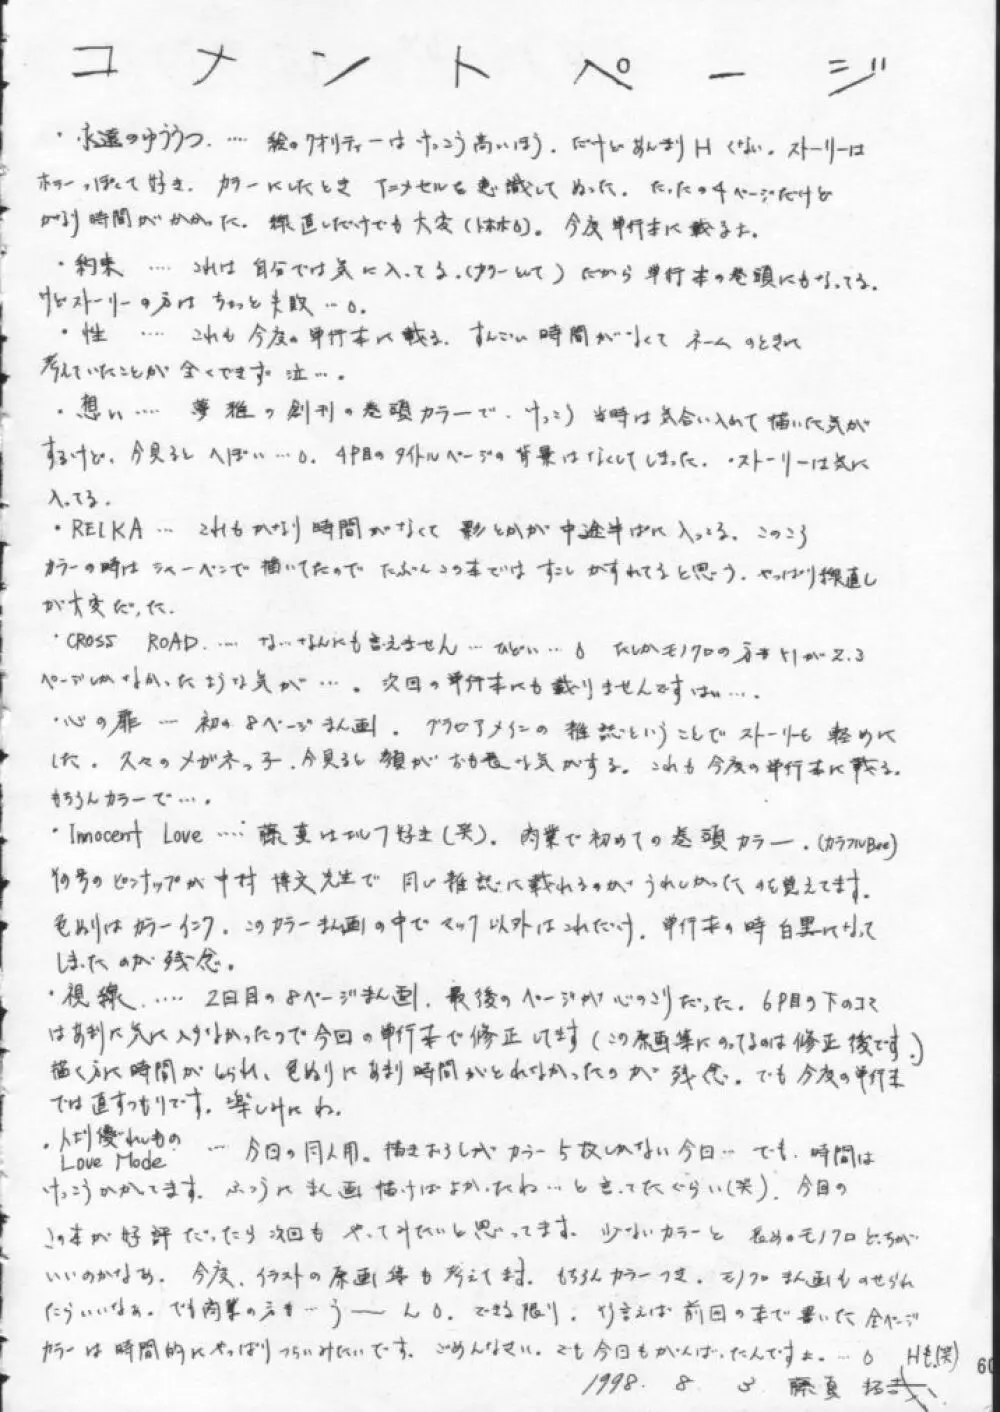 コメントページ
・永遠のゆううつ.…. 絵のクオリティーはけっこう高いほう. だけどあんまりHくない. ストーリーは
ホラーっぽくて好き. カラーにしたときアニメセルを意識してぬった. たったの4ページだけど
かなり時間がかかった. 線直しだけでも大変(トホホ). 今度単行本に載るよ.
・約束 …. これは自分では気に入ってる.(カラーとして) だから単行本の巻頭にもなってる.
けどストーリーの方はちょっと失敗….
・性 …. これも今度の単行本に載る. すんごい時間がなくてネームのときに
考えていたことが全くできず泣….
・想い…. 夢雅の創刊の巻頭カラーで. けっこう当時は気合い入れて描いた気が
するけど. 今見るとへぼい…. 4P目のタイトルページの背景はなくしてしまった. ・ストーリーは気に
入ってる.
・REIKA … これもかなり時間がなくて影とかが中途半ぱに入ってる. このころ
カラーの時はシャーペンで描いてたのでたぶんこの本ではすこしかすれてると思う. やっぱり線直し
が大変だった.
・CROSS ROAD.…. な…なんにも言えません…ひどい… たしかモノクロの方も 2.3
ページしかなかったような気が…. 次回の単行本にも載りませんですはい….
・心の扉 … 初の8ページまん画. グラビアメインの雑誌ということでストーリーも軽めに
した. 久々のメガネっ子. 今見ると顔がおも長な気がする. これも今度の単行本に載る.
もちろんカラーで….
・Innocent Love …. 藤真はエルフ好き(笑). 商業で初めての巻頭カラー.(カラフルBee)
その号のピンナップが中村博文先生で同じ雑誌に載れるのがうれしかったのを覚えてます.
色ぬりはカラーインク. このカラーまん画の中でマック以外はこれだけ. 単行本の時白黒になって
しまったのが残念.
・視線.…. 2回目の8ページまん画. 最後のページが心のこりだった. 6P目の下のコマ
はあまり気に入らなかったので今回の単行本で修正してます(この原画集にのってるのは修正後です.)
描く方に時間がとられ、色ぬりにあまり時間がとれなかったのが残念. でも今度の単行本
では直すつもりです. 楽しみにね.
・人より優れしもの
Love Mode … 今回の同人用. 描きおろしがカラー5枚しかない今回… でも. 時間は
けっこうかかてます. ふつうにまん画描けばよかったね…と言ってたぐらい(笑). 今回の
この本が好評だったら次回もやってみたいと思ってます. 少ないカラーと長めのモノクロどっちが
いいのかなぁ. 今度. イラストの原画集も考えてます. もちろんカラーつき. モノクロまん画ものせられ
たらいいなぁ. でも商業の方も…う――ん. できる限り. 前回の本で書いた全ページ
カラーは時間的にやっぱりつらいみたいです. ごめんなさい. でも今回もがんばったんですよ.… Hも.(笑)
1998. 8. 3 藤真拓哉
60